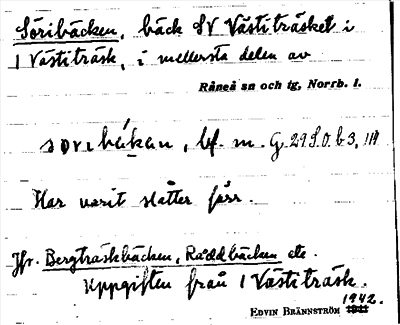 Soribäcken, bäck SV Västiträsket i
1 Västiträsk, i mellersta delen av
Råneå sn och tg, Norrb. l.
soribäkan, bf. m. G 29 S.O. b 3,
Har varit slåtter förr.
Jfr. Bergträskbäcken, Råddbäcken etc.
Uppgiften från 1 Västiträsk.
1942.
EDVIN BRÄNNSTRÖM 1941